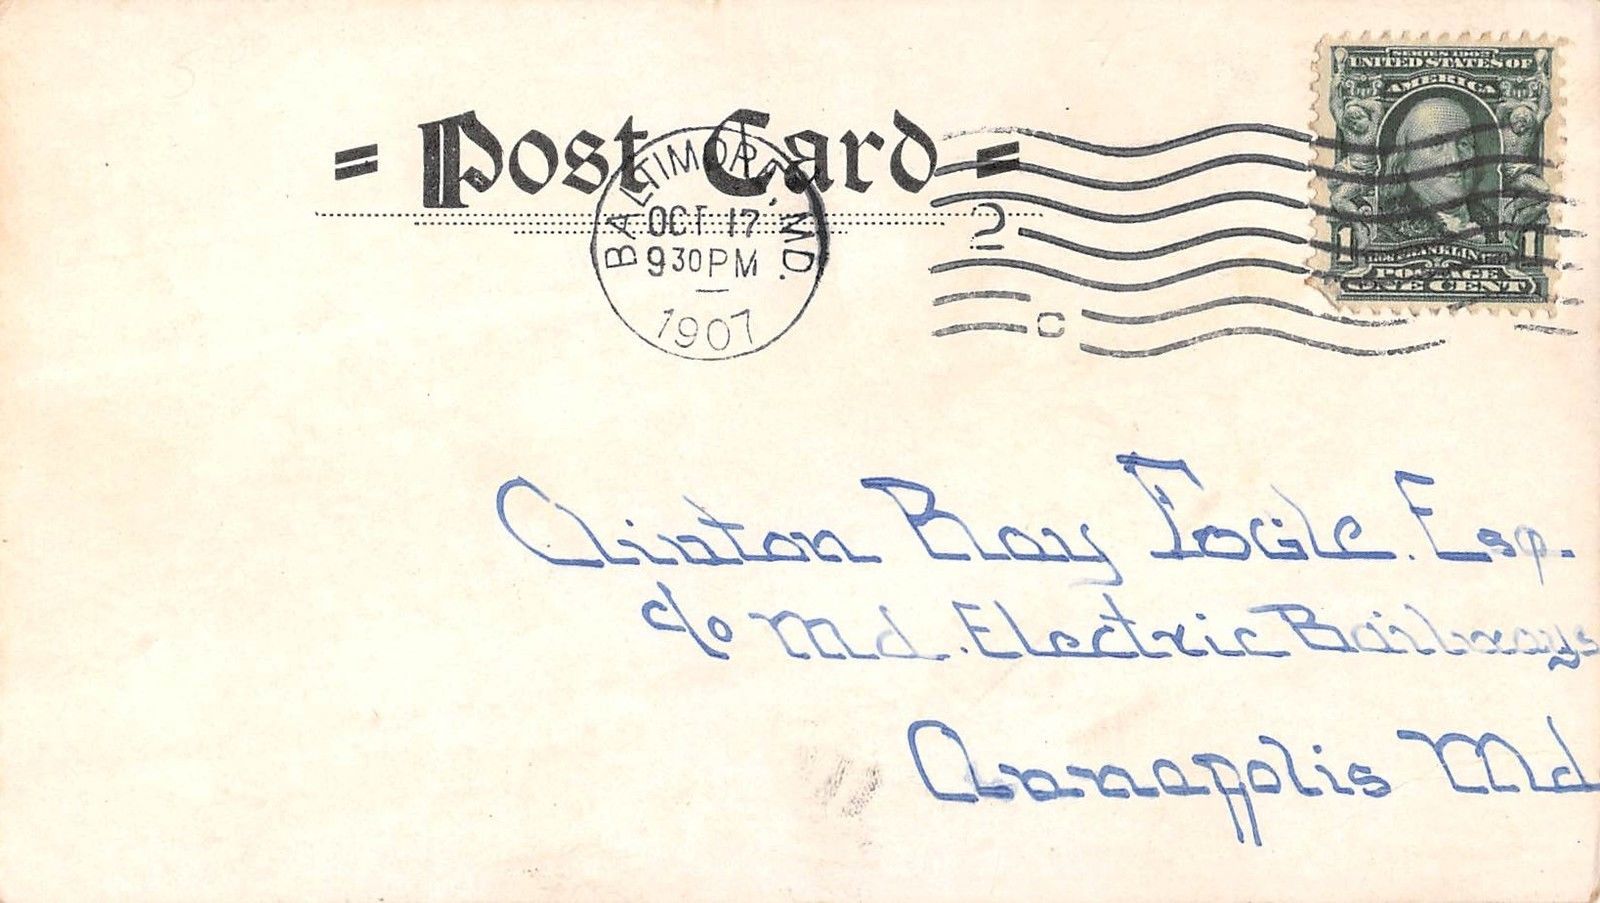 = Post Card =
BALTIMORE, MD.
OCT 17
9 30 PM
1907
2
C
SERIES 1902
UNITED STATES OF
AMERICA
1 1
FRANKLIN
POSTAGE
ONE CENT
Clinton Ray Fogle. Esq.
c/o Md. Electric Railways
Annapolis Md